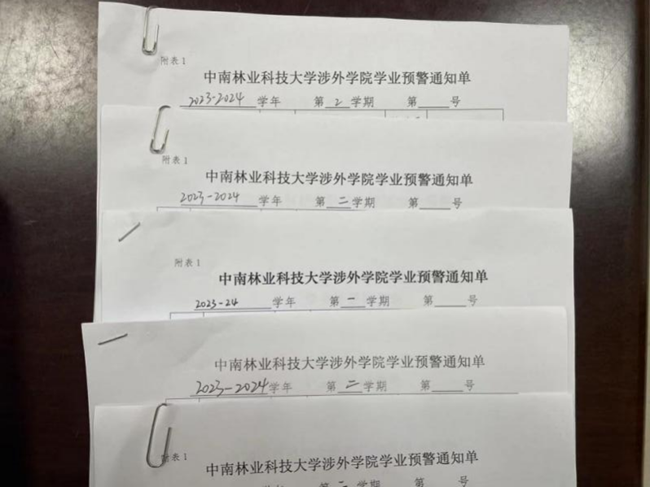 附表1
中南林业科技大学涉外学院学业预警通知单
2023-2024 学年 第 2 学期 第 号
附表1
中南林业科技大学涉外学院学业预警通知单
2023-2024 学年 第 二 学期 第 号
附表1
中南林业科技大学涉外学院学业预警通知单
2023-24 学年 第 一 学期 第 号
中南林业科技大学涉外学院学业预警通知单
2023-2024 学年 第 二 学期 第 号
附表1
中南林业科技大学涉外学院学业预警通知单